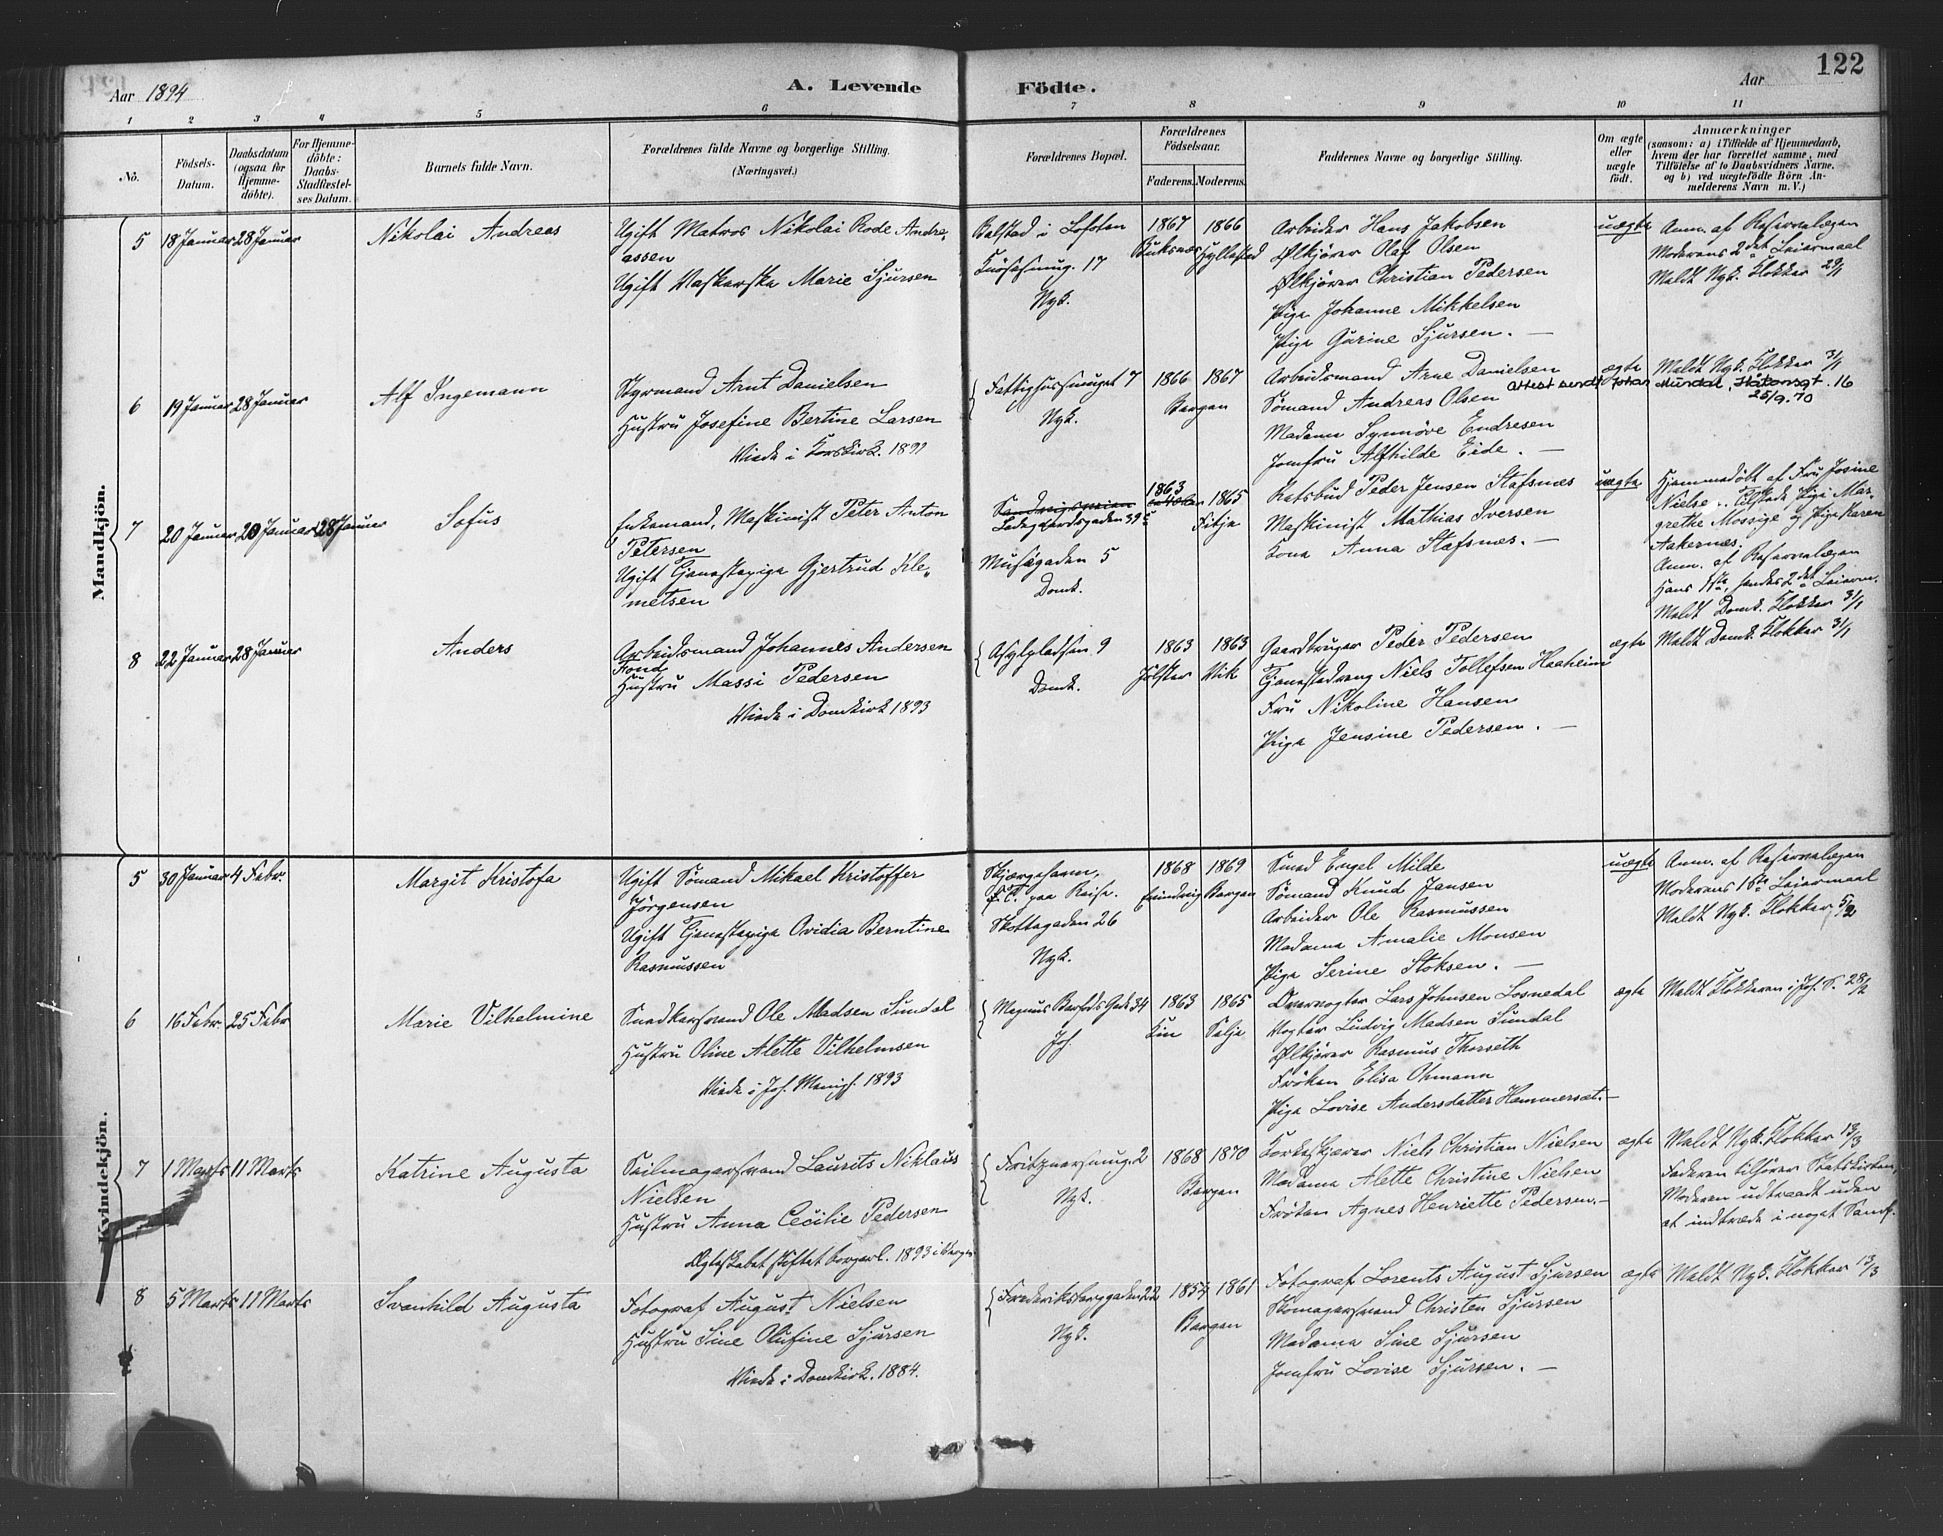 122
Aar 1894
A. Levende
Födte.
Aar
1 2 3 4 5 6 7 8 9 10 11
No.
Födsels-Datum.
Daabsdatum (ogsaa for Hjemme-döbte).
For Hjemme-döbte: Daabs-Stadfæstel-ses Datum.
Barnets fulde Navn.
Forældrenes fulde Navne og borgerlige Stilling. (Næringsvei.)
Forældrenes Bopæl.
Forældrenes Födselsaar.
Faderens. Moderens.
Faddernes Navne og borgerlige Stilling.
Om ægte eller uægte födt.
Anmærkninger
(saasom: a) i Tilfælde af Hjemmedaab, hvem der har forrettet samme, med Tilföielse af to Daabsvidners Navne. og b) ved uægtefödte Börn An-melderens Navn m. V.)
Mandkjön.
5 18 Januar 28 Januar
Nikolai Andreas
Ugift Matros Nikolai Rode Andre-
assen
Ugift Vaskerske Marie Sjursen
Balstad i Lofoten
17
Nyk.
1867 1866
Buksnæs Hyllestad
Arbeider Hans Jakobsen
Ølkjörer Olaf Olsen
Ølkjörer Christian Pedersen
Pige Johanne Mikkelsen
Pige Gurine Sjursen. —
uægte
Anm. af Reservelægen
Moderens 2det Leiermaal
Meldt Nyk. Klokker 29/1
6 19 Januar 28 Januar
Alf Ingemann
Styrmand Arnt Danielsen
Hustru Josefine Bertine Larsen
Viede i Korskirk. 1891
Fattighussmuget 7
Nyk.
1866 1867
Bergen
Arbeidsmand Arne Danielsen
Sömand Andreas Olsen
Madame Synnöve Endresen
Jomfru Alfhilde Eide. —
ægte
Meldt Nyk. Klokker 31/1
Attest sendt Johan Mundal, 16
25/9.70
7 20 Januar 20 Januar 28 Januar
Sofus
Enkemand, Maskinist Peter Anton
Petersen
Ugift Tjenestepige Gjertrud Kle-
metsen
Sandvigsveien
Ladegaardsgaden 39
Musegaden 5
Domk.
1863 1865
Fitje
Retsbud Peder Jensen Stafsnes
Maskinist Mathias Iversen
Kona Anna Stafsnes. —
uægte
Hjemmedöbt af Fru Josine
Nielse Pige Mar-
grethe Mossige og Pige Karen
Aakernes.
Anm. af Reservelægen
Hans 1ste, hendes 2det Leierm.
Meldt Domk. Klokker 31/1
8 22 Januar 28 Januar
Anders
Arbeidsmand Johannes Andersen
Fond
Hustru Massi Pedersen
Viede i Domkirk 1893
Asylpladsen 9
Domk.
1863 1863
Jölster Vik
Gaardbruger Peder Pedersen
Tjenestedreng Niels Tollefsen Haaheim
Fru Nikoline Hansen
Pige Jensine Pedersen. —
ægte
Meldt Domk. Klokker 31/1
Kvindekjön.
5 30 Januar 4 Febr.
Margit Kristofa
Ugift Sömand Mikael Kristoffer
Jörgensen
Ugift Tjenestepige Ovidia Berntine
Rasmussen
Skjærgehavn,
paa Reise.
Skottegaden 26
Nyk.
1868 1869
Evindvig Bergen
Smed Engel Milde
Sömand Knud Jansen
Arbeider Ole Rasmussen
Madame Amalie Monsen
Pige Serine Stoksen. —
uægte
Anm. af Reservelægen
Moderens 1ste Leiermaal
Meldt Nyk. Klokker 5/2
6 16 Febr. 25 Febr
Marie Vilhelmine
Snedkersvend Ole Madsen Sundal
Hustru Oline Alette Vilhelmsen
Viede i Joh. Menigh. 1893
Magnus Barfods Gade 34
Joh
1863 1865
Kin Selje
Overvogter Lars Johnsen Losnedal
Vogter Ludvig Madsen Sundal
Ølkjörer Rasmus Thorseth
Fröken Elisa Ohmann
Pige Lovise Andersdatter Hammerset. —
ægte
Meldt Klokkeren i Joh. S. 28/2
7 1 Marts 11 Marts
Katrine Augusta
Seilmagersvend Laurits Niklaus
Nielsen
Hustru Anna Cecilie Pedersen
Ægteskabet stiftet borgerl. 1893 i Bergen
Fritznersmug. 2
Nyk.
1868 1870
Bergen
Korkeskjærer Niels Christian Nielsen
Madame Alette Christine Nielsen
Fröken Agnes Henriette Pedersen. —
ægte
Meldt Nyk. Klokker 13/3
Faderen tilhörer Statskirken,
Moderen udtraadt uden
at indtræde i noget Samf.
8 5 Marts 11 Marts
Svanhild Augusta
Fotograf August Nielsen
Hustru Sine Olufine Sjursen
Viede i Domkirk. 1884.
Frederiksberggaden 22
Nyk.
1854 1861
Bergen
Fotograf Lorents August Sjursen
Skomagersvend Christen Sjursen
Madame Sine Sjursen
Jomfru Lovise Sjursen. —
ægte
Meldt Nyk. Klokker 13/3